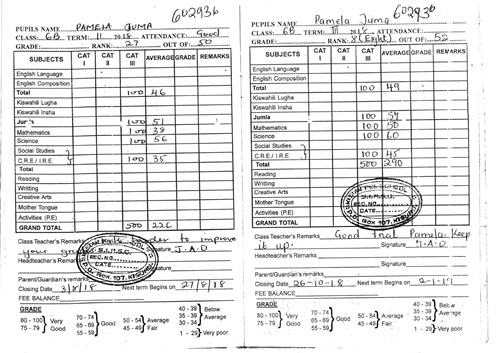 602936
PUPILS NAME PAMELA JUMA
CLASS: 6B TERM: II 2018 ATTENDANCE: Good
GRADE: RANK: 27 OUT OF: 50
SUBJECTS CAT I CAT II CAT III AVERAGE GRADE REMARKS
English Language
English Composition
Total 100 46
Kiswahili Lugha
Kiswahili Insha
100 51
Mathematics 100 38
Science 100 56
Social Studies
C.R.E / I.R.E. 100 35
Total
Reading
Writting
Creative Arts
Mother Tongue
Activities (P.E)
GRAND TOTAL 500 226
Class Teacher's Remarks to improve
your Signature J.A.O
Headteacher's Remarks
Parent/Guardian's remarks
Closing Date 3/8/18 Next term Begins on 27/8/18
FEE BALANCE
GRADE
80 - 100 Very 70 - 74 50 - 54 Average 40 - 39 Below
75 - 79 Good 65 - 69 Good 45 - 49 Fair 35 - 39 Average
55 - 59 30 - 34
1 - 29 Very poor
602936
PUPILS NAME Pamela Juma
CLASS: 6B TERM: III 2018 ATTENDANCE:
GRADE: RANK: 8 (Eight) OUT OF: 52
SUBJECTS CAT I CAT II CAT III AVERAGE GRADE REMARKS
English Language
English Composition
Total 100 49
Kiswahili Lugha
Kiswahili Insha
Jumla 100
Mathematics 100 50
Science 100 60
Social Studies
C.R.E / I.R.E. 100 45
Total 500 290
Reading
Writting
Creative Arts
Mother Tongue
Activities (P.E)
GRAND TOTAL
Class Teacher's Remarks Good trial Pamela. Keep
it up. Signature J.A.O
Headteacher's Remarks Signature
Parent/Guardian's remarks
Closing Date 26-10-18 Next term Begins on 2-1-19
FEE BALANCE
GRADE
80 - 100 Very 70 - 74 50 - 54 Average 40 - 39 Below
75 - 79 Good 65 - 69 Good 45 - 49 Fair 35 - 39 Average
55 - 59 30 - 34
1 - 29 Very poor